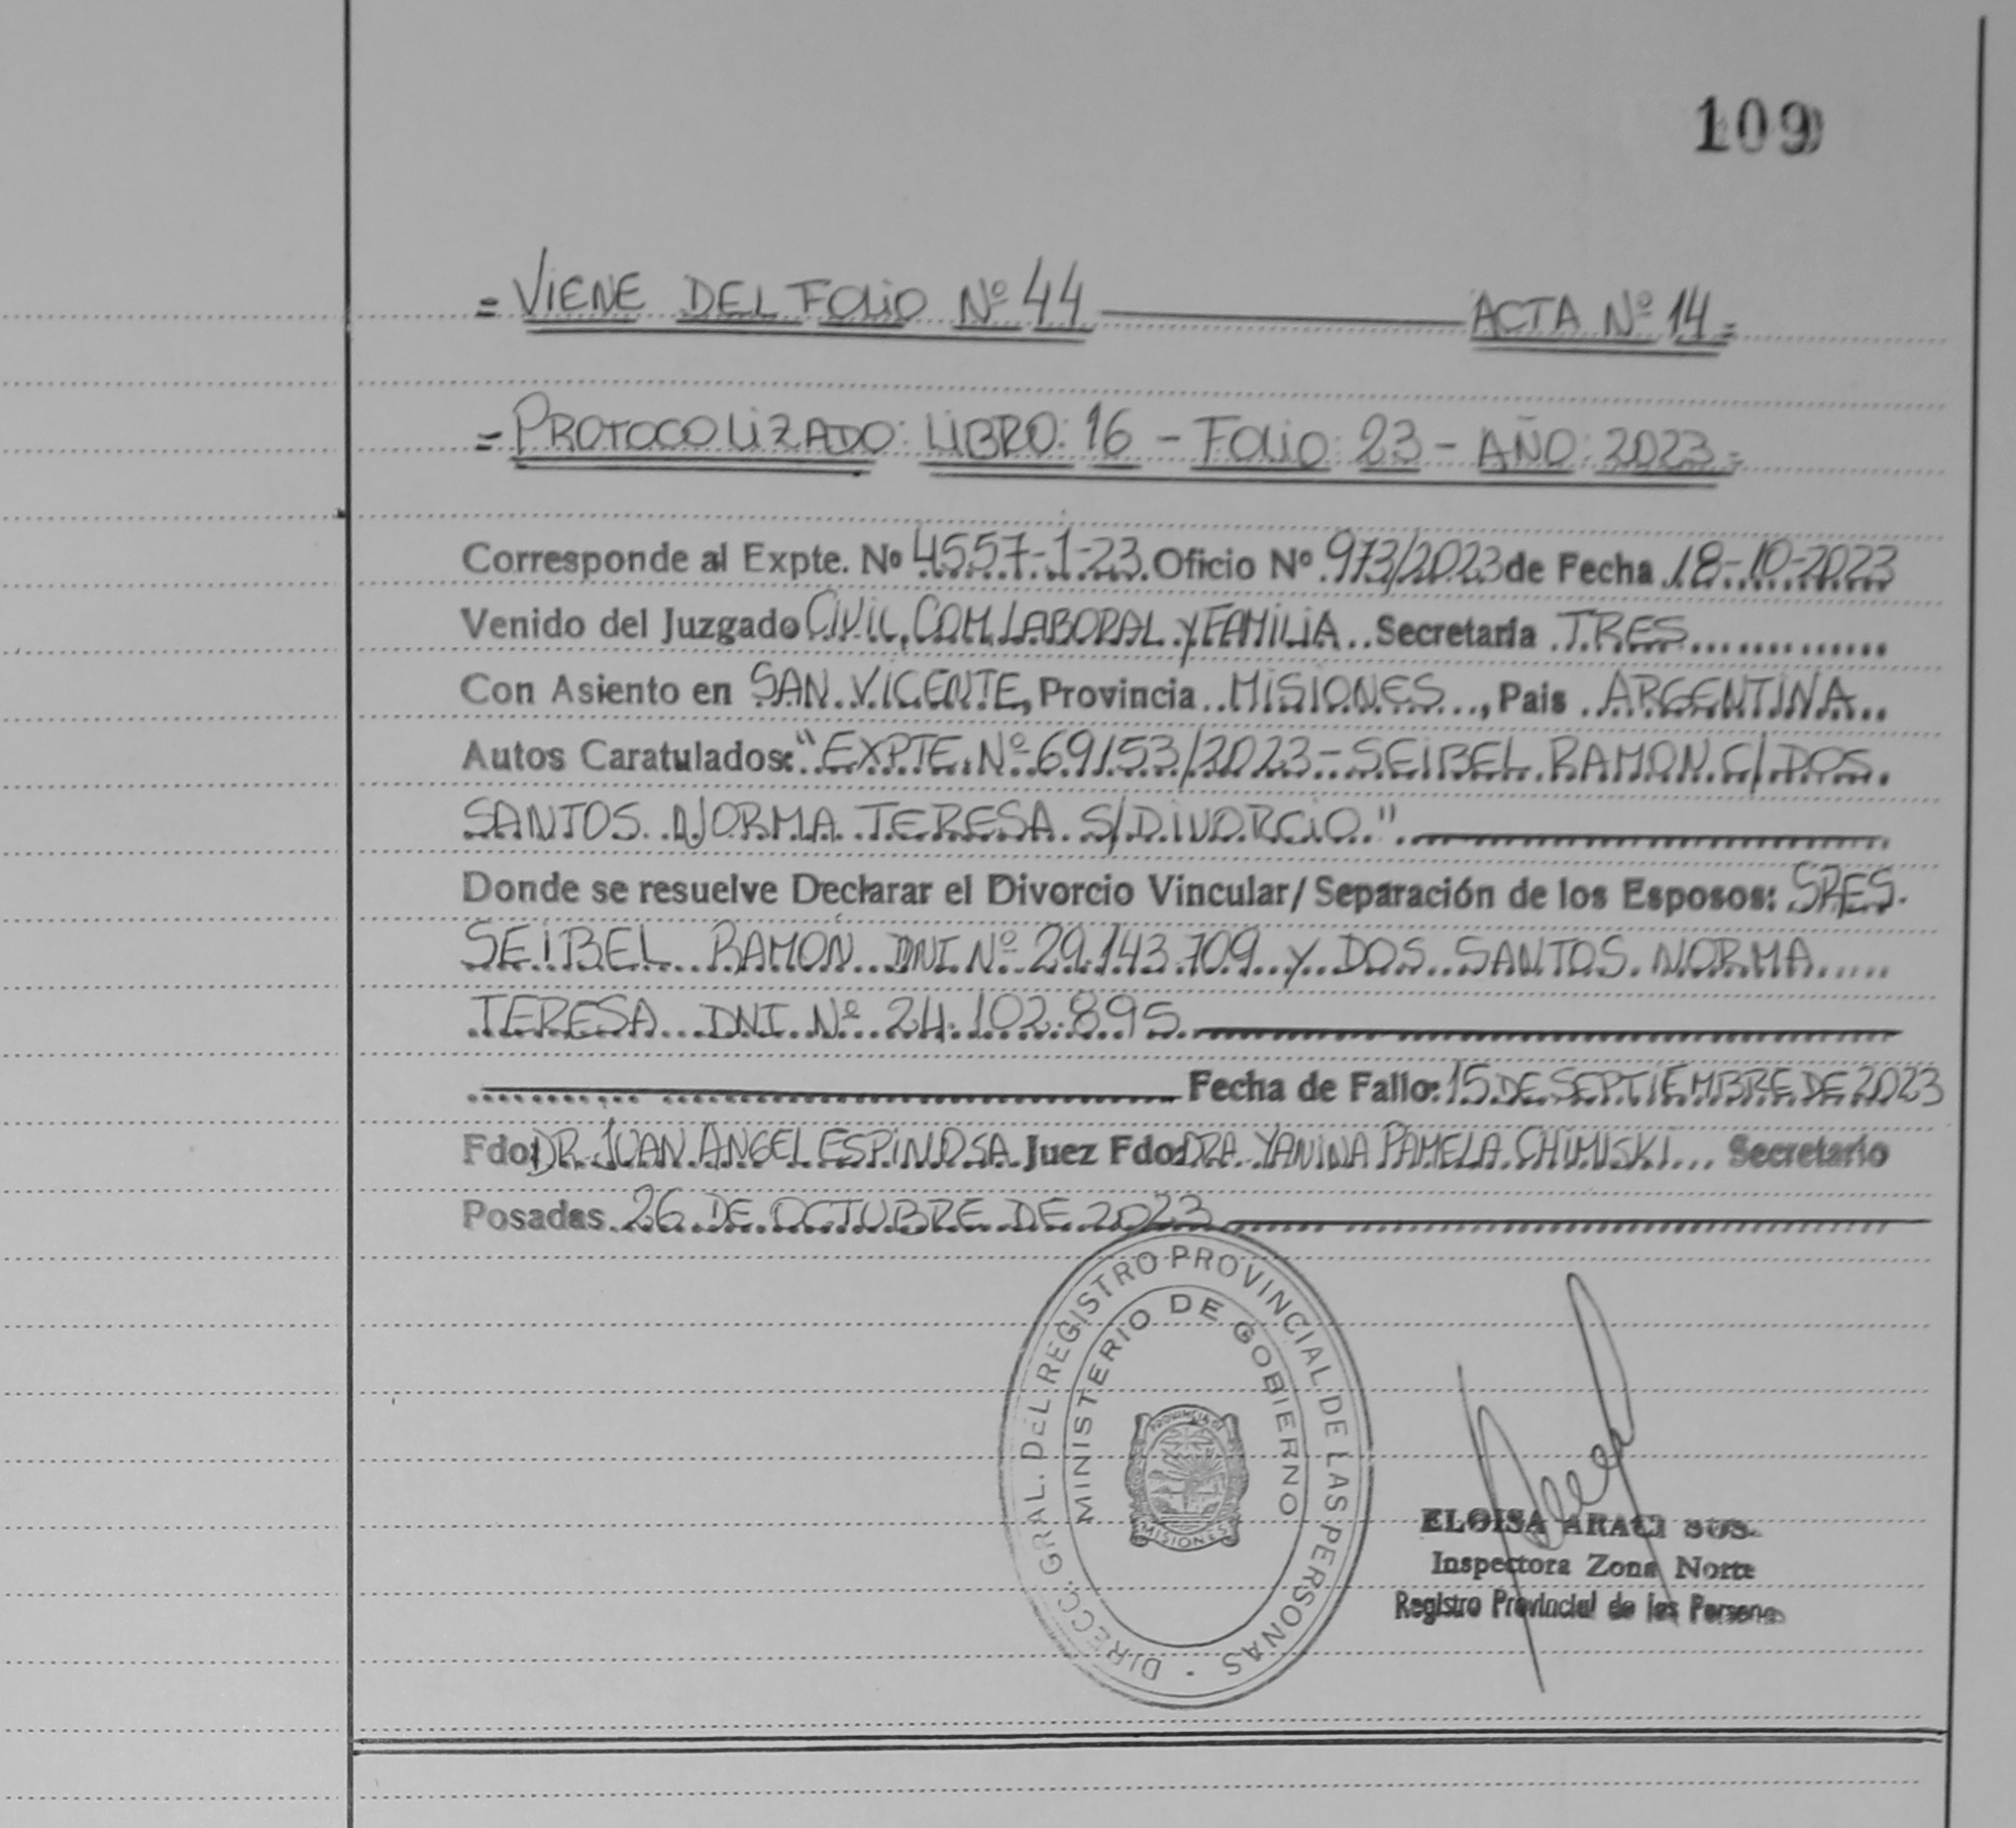 109
= VIENE DEL FOLIO Nº 44 ACTA Nº 14 =
= PROTOCOLIZADO: LIBRO: 16 - FOLIO: 23 - AÑO: 2023 =
Corresponde al Expte. Nº 4557-1-23. Oficio Nº 973/2023 de Fecha 18-10-2023
Venido del Juzgado CIVIL, COM. LABORAL y FAMILIA Secretaría TRES
Con Asiento en SAN VICENTE, Provincia MISIONES, Pais ARGENTINA
Autos Caratulados: "EXPTE. Nº 69153/2023 - SEIBEL RAMON C/ DOS
SANTOS NORMA TERESA S/DIVORCIO."
Donde se resuelve Declarar el Divorcio Vincular/Separación de los Esposos: SRES.
SEIBEL RAMON DNI Nº 29.143.709 y DOS SANTOS NORMA
TERESA DNI Nº 24.102.895
Fecha de Fallo: 15 DE SEPTIEMBRE DE 2023
Fdo: DR. JUAN ANGEL ESPINOSA Juez Fdo: DRA. YANINA PAMELA CHIMISKI Secretario
Posadas 26 DE OCTUBRE DE 2023
DIRECC. GRAL. DEL REGISTRO PROVINCIAL DE LAS PERSONAS
MINISTERIO DE GOBIERNO
PROVINCIA DE
MISIONES
ELOISA ARACI
Inspectora Zona Norte
Registro Provincial de las Persona